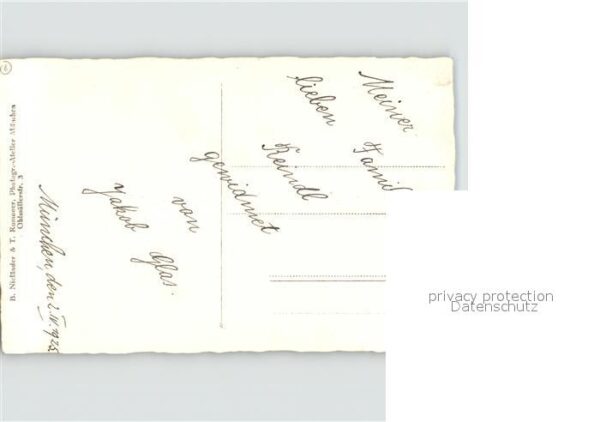 6
B. Niclhuder & T. Rumaver, Photogr.-Atelier München
Ohlmüllerstr. 3
Meiner
lieben Famil
Reindl
gewidmet
von
Jakob Glas.
München, den 2. IV. 1925
privacy protection
Datenschutz